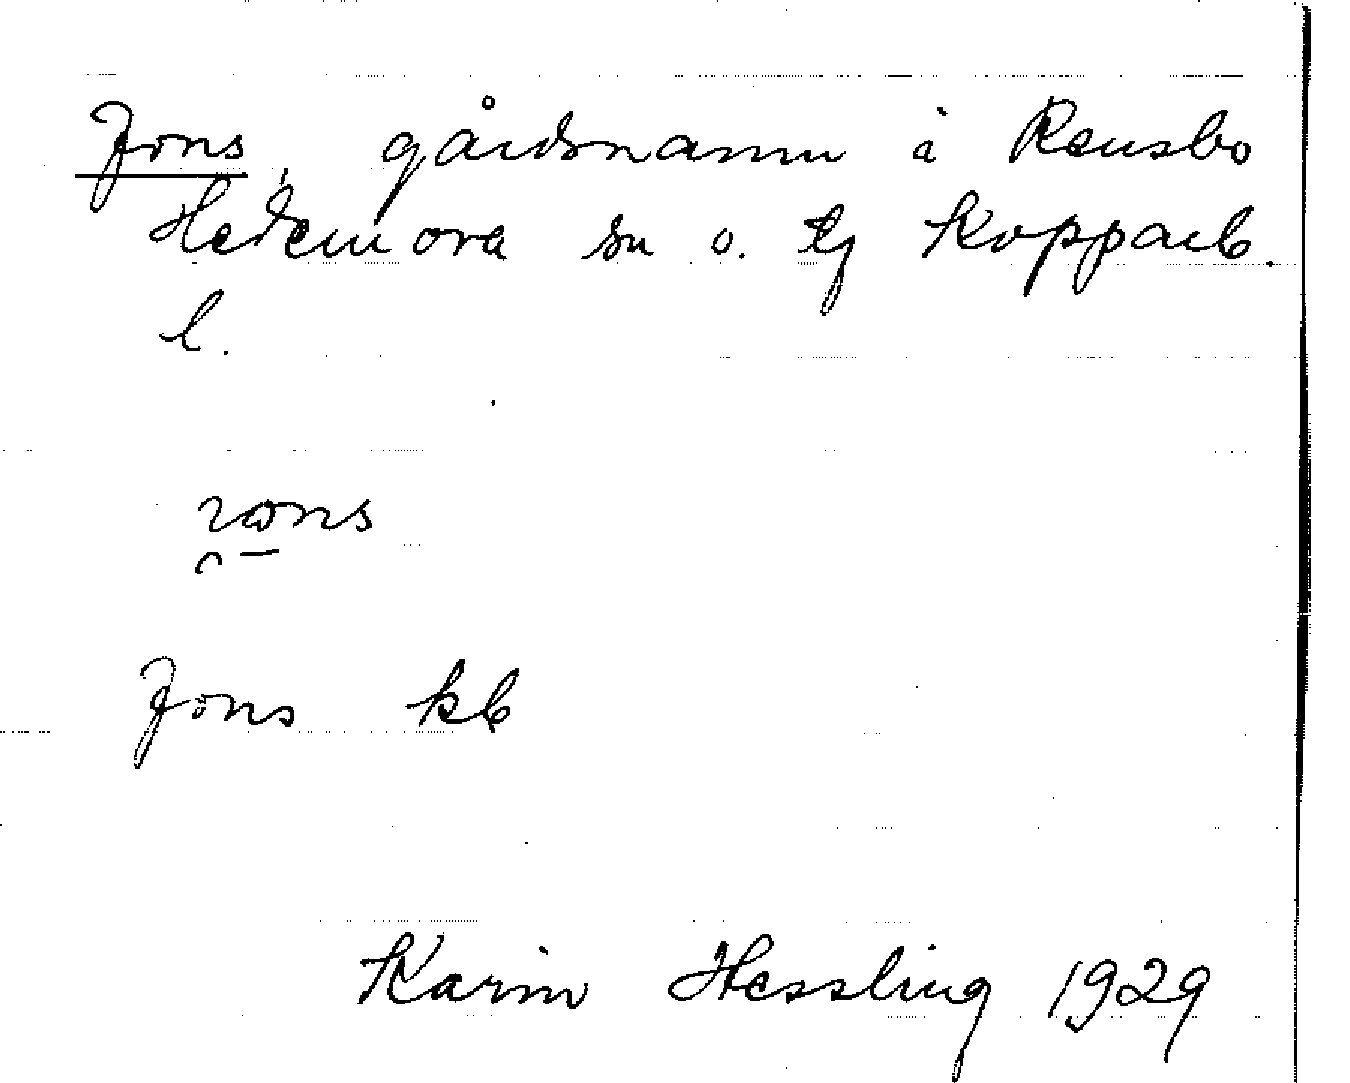 Jons, gårdsnamn i Rensbo
Hedemora sn o. tg Kopparb.
l.
Jons kb
Karin Hessling 1929